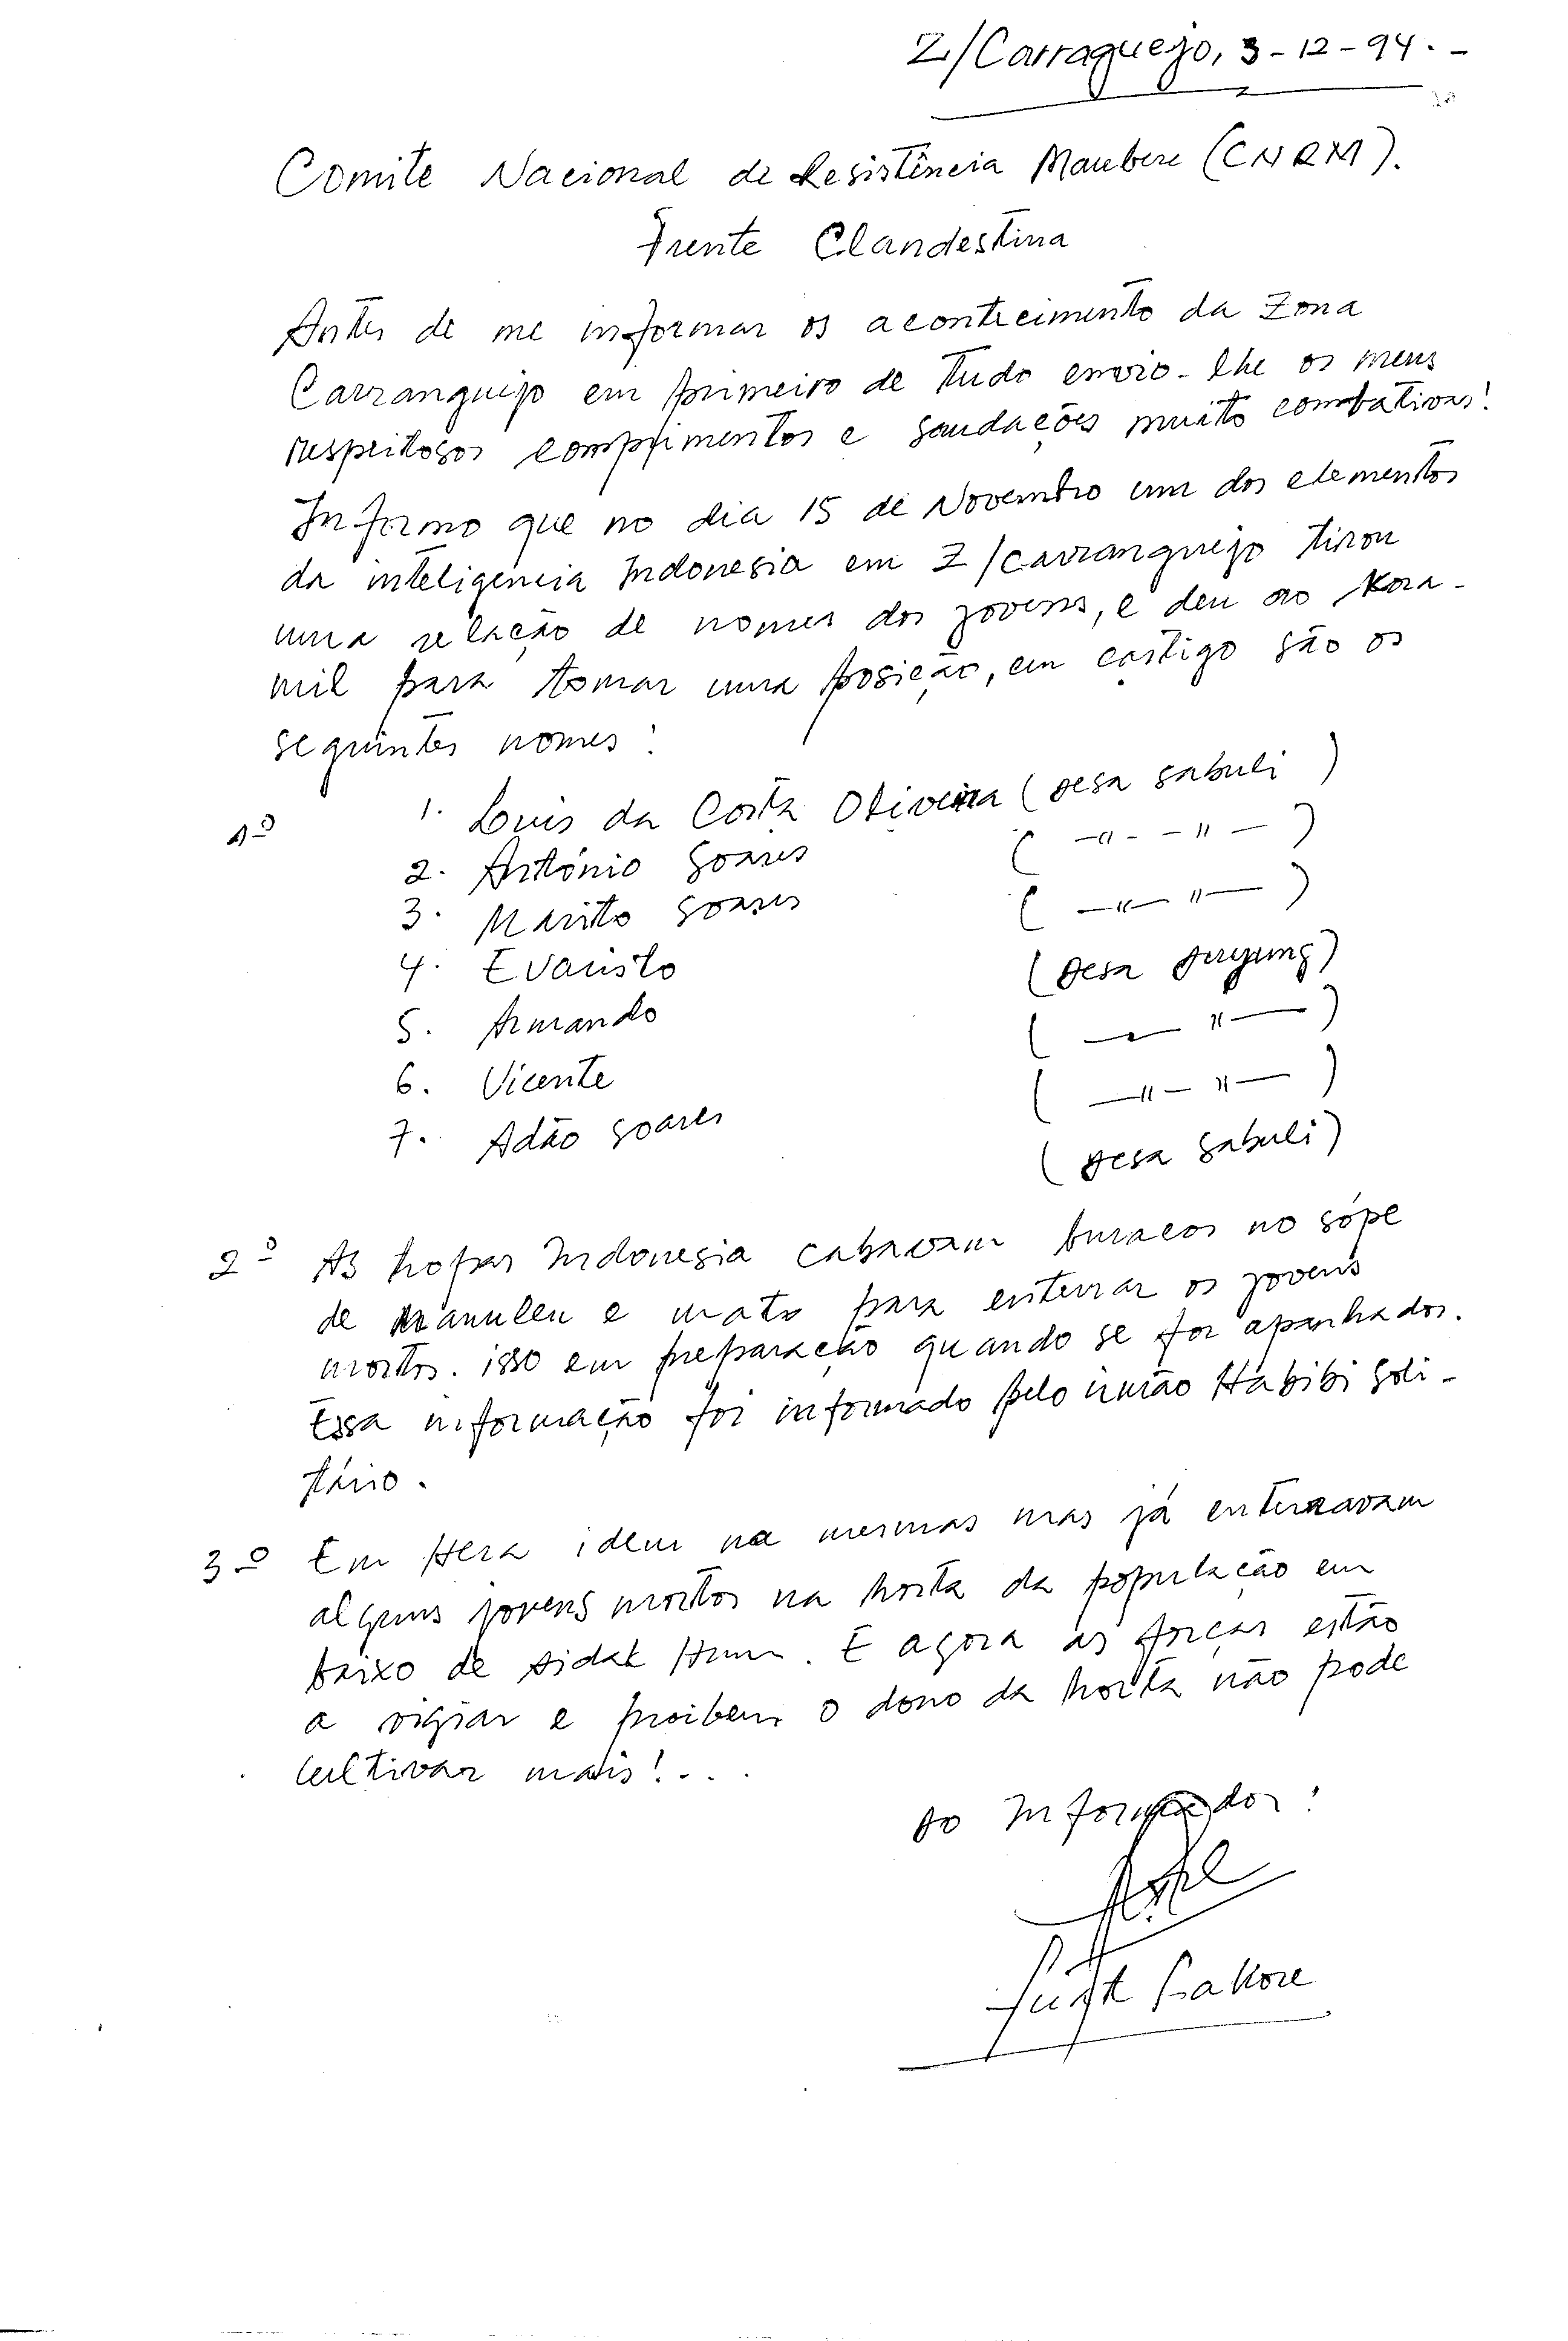 Z/Carraguejo, 3-12-94.-
Comite Nacional de Resistência Maubere (CNRM).
Frente Clandestina
Antes de me informar os acontecimento da Zona
Carranguejo em primeiro de tudo envio-lhe os meus
respeitosos comprimentos e saudações muito combativas!
Informo que no dia 15 de Novembro um dos elementos
da inteligencia Indonesia em Z/Carranguejo tirou
uma relação de nomes dos jovens, e deu ao Kora-
mil para tomar uma posição, em castigo são os
seguintes nomes:
1º 1. Luis da Costa Oliveira (Desa Sabuli)
2. António Soares ( —"- -"— )
3. Marito Soares ( —"— "— )
4. Evaristo (Desa)
5. Armando ( — "— )
6. Vicente ( —"— "— )
7. Adão Soares (Desa Sabuli)
2º As tropas Indonesia cabavam buracos no sópe
de Manuleu e mato para enterrar os jovens
mortos. isso em preparação quando se for apanhados.
Essa informação foi informado pelo irmão Habibi Soli-
tário.
3º Em Hera idem na mesmas mas já enterravam
alguns jovens mortos na horta da população em
baixo de Aidak Hun. E agora as forças estão
a vigiar e proibem o dono da horta não pode
cultivar mais!...
Ao Informador: